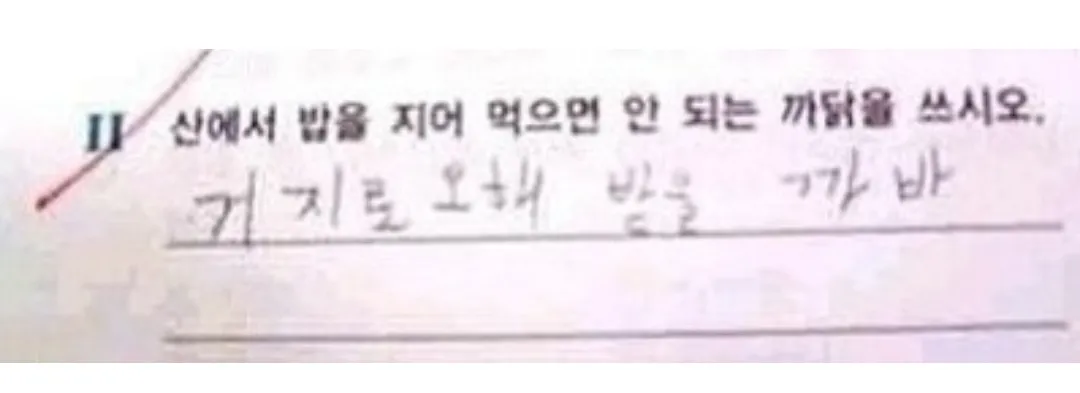 11 산에서 밥을 지어 먹으면 안 되는 까닭을 쓰시오.
거지로 오해 받을 까바